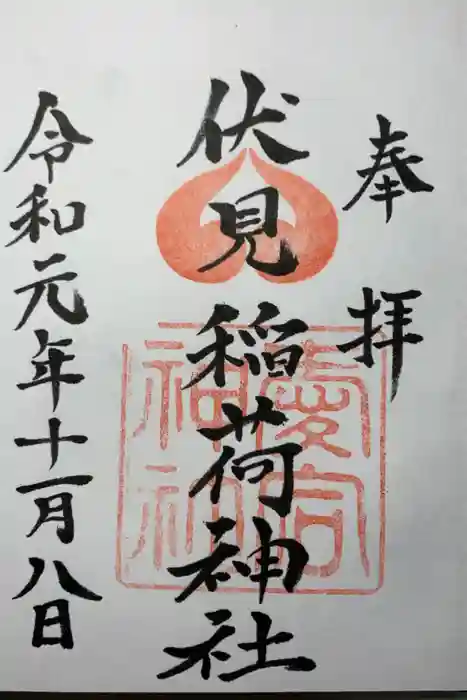 奉拝
伏見稲荷神社
令和元年十一月八日
愛宕神社